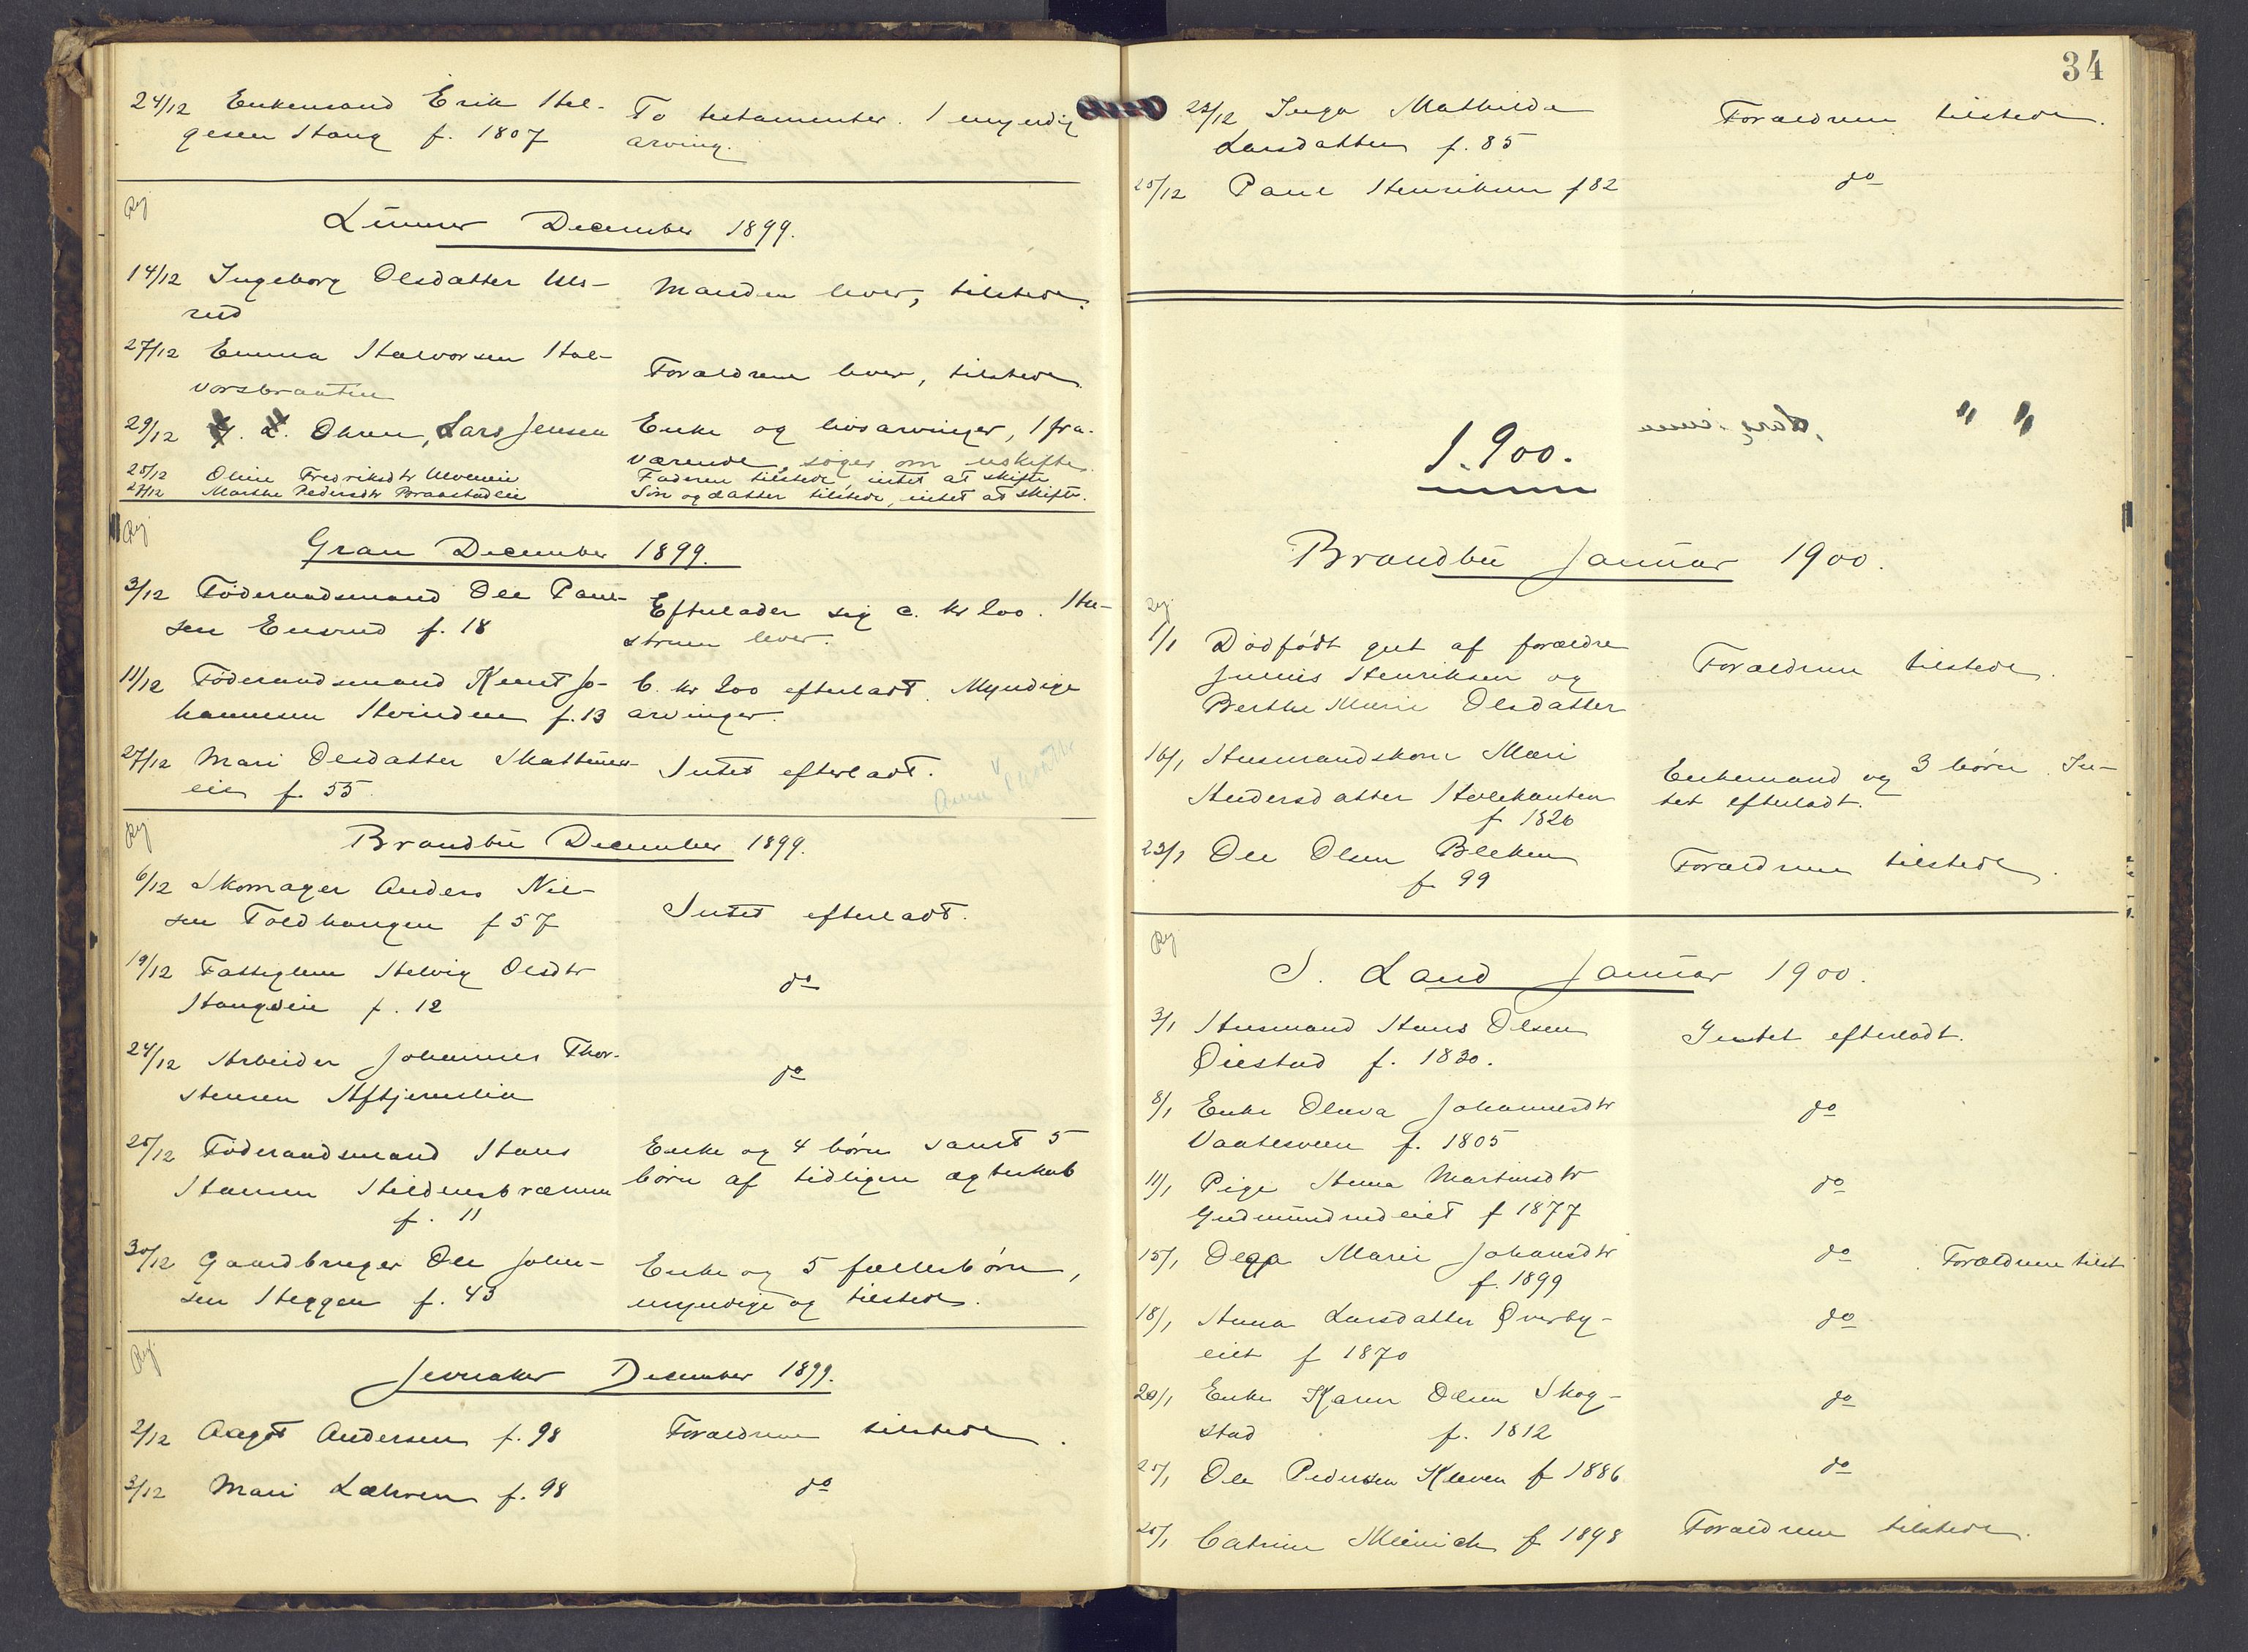 24/12 Enkemand Erik Hel-
gesen Hang f. 1807
To testamenter. 1 myndig
arving.
Reg
Lunner December 1899.
14/12 Ingeborg Olsdatter Uls-
rud
Manden lever, tilstede.
27/12 Emma Halvorsen Hal-
vorsbraaten
Forældrene lever, tilstede.
29/12 Ohren, Lars Jensen
Enke og livsarvinger, 1 fra-
værende, søger om uskifte.
25/12 Oline Fredriksdtr Ulveneie
Faderen tilstede, intet at skifte
27/12 Marthe Pedersdtr Braastadeie
Søn og datter tilstede, intet at skifte.
Reg.
Gran December 1899.
3/12 Föderaadsmand Ole Paul-
sen Ensrud f. 18
Efterlader sig c. kr 200. Hu-
struen lever.
11/12 Föderaadsmand Knut Jo-
hannesen Hvinden f. 13
C. kr 200 efterladt. Myndige
arvinger.
27/12 Mari Olsdatter
eie f. 55
Intet efterladt.
Reg
Brandbu December 1899.
6/12 Skomager Anders Nil-
sen Foldhaugen f 57
Intet efterladt.
19/12 Fattiglem Helvig Olsdtr
Haugseie f. 12
do
24/12 Arbeider Johannes Thor-
stensen
do
25/12 Föderaadsmand Hans
Hansen
f. 11
Enke og 4 børn samt 5
børn af tidligere ægteskab
30/12 Gaardbruger Ole John-
sen Heggen f. 43
Enke og 5 fællesbørn,
myndige og tilstede.
Reg.
Jevnaker December 1899.
2/12 Aagot Andersen f. 98
Forældrene tilstede.
3/12 Mari Læhren f. 98
do
34
22/12 Inga Mathilde
Larsdatter f. 85
Forældrene tilstede.
25/12 Paul Henriksen f 82
do
1900.
Brandbu Januar 1900.
Reg.
1/1 Dødfødt gut af forældre
Julius Henriksen og
Berthe Marie Olsdatter
Forældrene tilstede.
16/1 Husmandskone Mari
Andersdatter Holekanten
f 1826
Enkemand og 3 børn. In-
tet efterladt.
23/1 Ole Olsen Bleken
f. 99
Forældrene tilstede.
Reg
S. Land Januar 1900.
3/1 Husmand Hans Olsen
Øiestad f. 1830.
Intet efterladt.
8/1 Enke Oleva Johannesdtr
Vaatesveen f. 1805
do
11/1 Pige Anna Martinsdtr
Gudmundrudeiet f 1877
do
15/1 Olga Marie Johansdtr
f. 1899
do. Forældrene tilst
18/1 Anna Larsdatter Øverby-
eiet f 1870
do
20/1 Enke Karen Olsen Skog-
stad f. 1812
do
25/1 Ole Pedersen Kleven f 1886
do
25/1 Catrine Meinich f 1898
Forældrene tilstede.